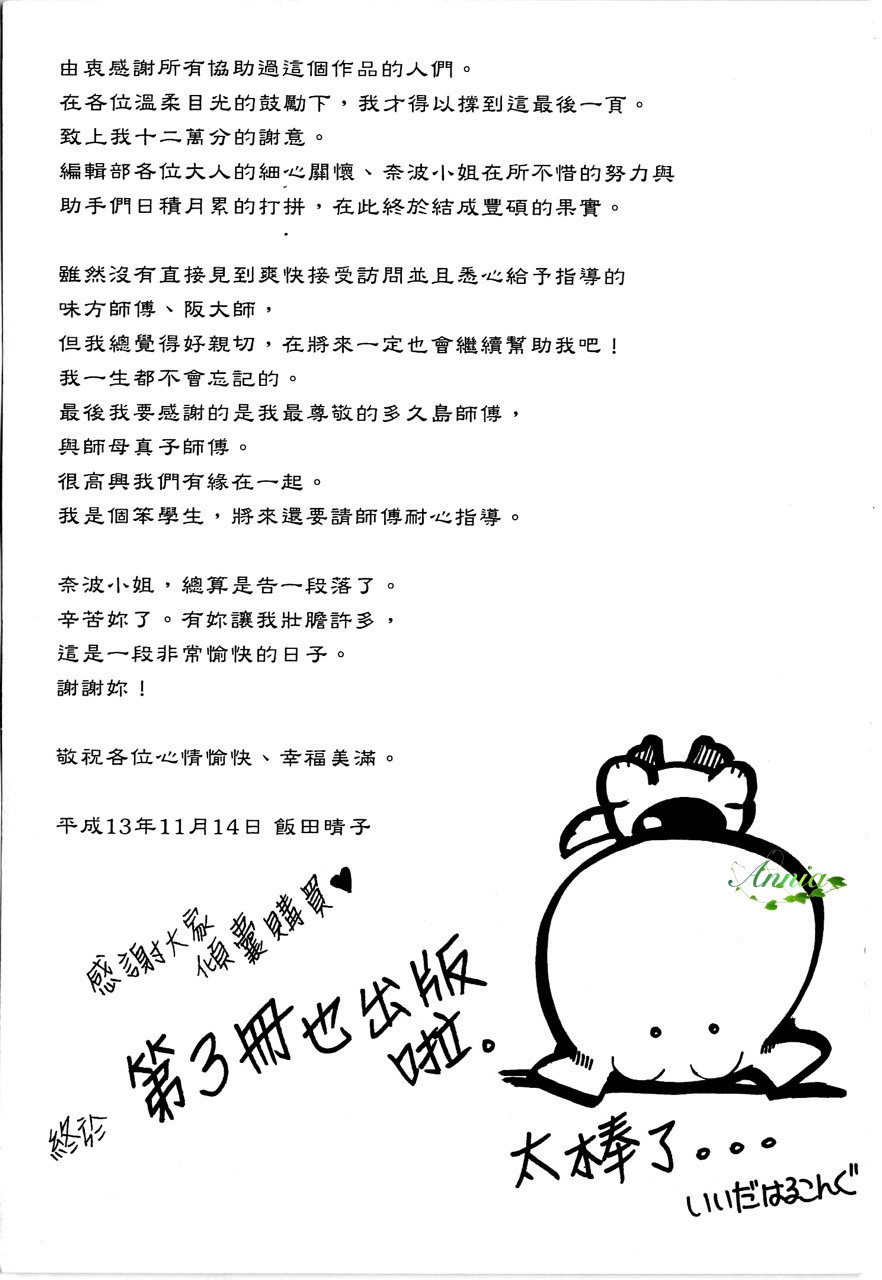 由衷感謝所有協助過這個作品的人們。
在各位溫柔目光的鼓勵下，我才得以撐到這最後一頁。
致上我十二萬分的謝意。
編輯部各位大人的細心關懷、奈波小姐在所不惜的努力與
助手們日積月累的打拼，在此終於結成豐碩的果實。
雖然沒有直接見到爽快接受訪問並且悉心給予指導的
味方師傅、阪大師，
但我總覺得好親切，在將來一定也會繼續幫助我吧！
我一生都不會忘記的。
最後我要感謝的是我最尊敬的多久島師傅，
與師母真子師傅。
很高興我們有緣在一起。
我是個笨學生，將來還要請師傅耐心指導。
奈波小姐，總算是告一段落了。
辛苦妳了。有妳讓我壯膽許多，
這是一段非常愉快的日子。
謝謝妳！
敬祝各位心情愉快、幸福美滿。
平成13年11月14日 飯田晴子
Annia
感謝大家
傾囊購買♥
終於
第3冊也出版
啦。
太棒了。。。
いいだはるこんぐ